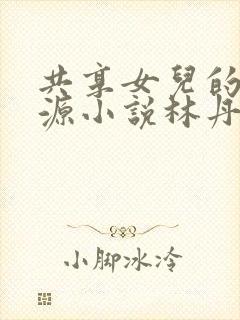 共享女兒的
源小說林丹
小脚冰冷